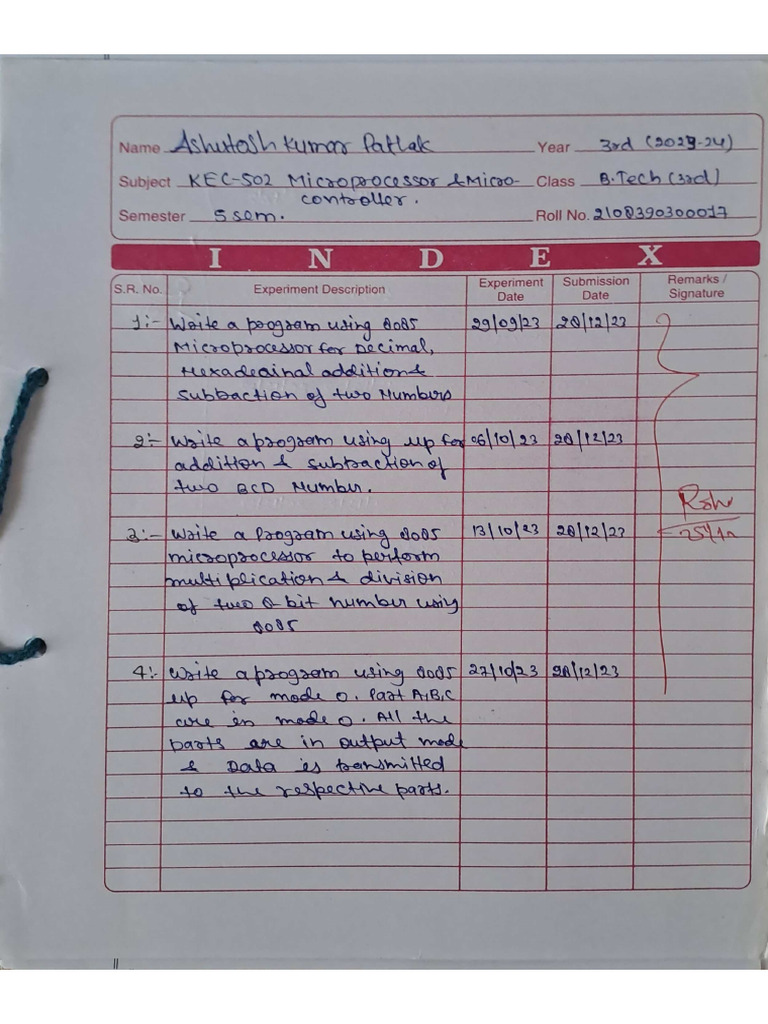 Name Ashutosh Kumar Patlak Year 3rd (2023-24)
Subject KEC-502 Microprocessor & Micro- Class B.Tech (3rd)
controller.
Semester 5 sem. Roll No. 2108390300017
INDEX
S.R. No. Experiment Description Experiment Date Submission Date Remarks / Signature
1:- Write a program using 8085 29/09/23 28/12/23
Microprocessor for Decimal,
Hexadeainal addition &
Subbaction of two Numbers
2:- Write a program using up for 06/10/23 28/12/23
addition & subtraction of
two BCD Number.
3:- Write a Program using 8085 13/10/23 28/12/23
microprocessor to perform
multiplication & division
of two 8-bit number using
8085
4:- Write a program using 8085 27/10/23 28/12/23
up for mode 0. Part A,B,C
are in mode 0. All the
parts are in output mode
& Data is transmitted
to the respective parts.